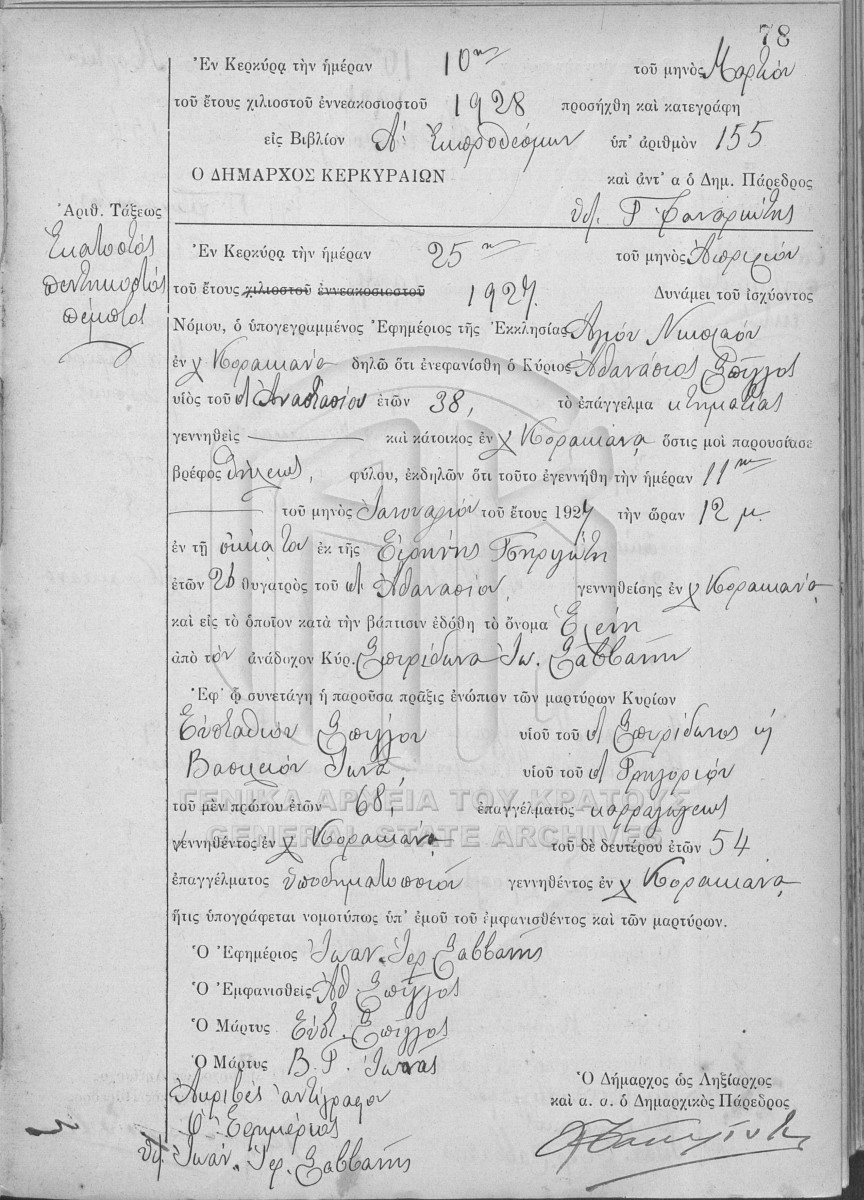 78
Ἐν Κερκύρᾳ τὴν ἡμέραν 10ην τοῦ μηνὸς Μαρτίου
τοῦ ἔτους χιλιοστοῦ ἐννεακοσιοστοῦ 1928 προσήχθη καὶ κατεγράφη
εἰς Βιβλίον Α' Ἐκπροθέσμων ὑπ' ἀριθμὸν 155
Ο ΔΗΜΑΡΧΟΣ ΚΕΡΚΥΡΑΙΩΝ καὶ ἀντ' α ὁ Δημ. Πάρεδρος
Ἀριθ. Τάξεως
Ἑκατοστός
πεντηκοστός
πέμπτος
Ἐν Κερκύρᾳ τὴν ἡμέραν 25ην τοῦ μηνὸς Ἀπριλίου
τοῦ ἔτους χιλιοστοῦ ἐννεακοσιοστοῦ 1927. Δυνάμει τοῦ ἰσχύοντος
Νόμου, ὁ ὑπογεγραμμένος Ἐφημέριος τῆς Ἐκκλησίας Ἁγίου Νικολάου
ἐν χ Κορακιάνα δηλῶ ὅτι ἐνεφανίσθη ὁ Κύριος Ἀθανάσιος Σπίγγος
υἱὸς τοῦ Ἀναστασίου ἐτῶν 38, τὸ ἐπάγγελμα κτηματίας
γεννηθεὶς καὶ κάτοικος ἐν χ Κορακιάνα ὅστις μοὶ παρουσίασε
βρέφος θήλεως, φύλου, ἐκδηλῶν ὅτι τοῦτο ἐγεννήθη τὴν ἡμέραν 11ην
τοῦ μηνὸς Ἰανουαρίου τοῦ ἔτους 1927 τὴν ὥραν 12 μ.
ἐν τῇ οἰκίᾳ του ἐκ τῆς Εἰρήνης
ἐτῶν 26 θυγατρὸς τοῦ Ἀθανασίου, γεννηθείσης ἐν χ Κορακιάνα,
καὶ εἰς τὸ ὁποῖον κατὰ τὴν βάπτισιν ἐδόθη τὸ ὄνομα Ἑλένη
ἀπὸ τὸν ἀνάδοχον Κύρ. Σπυρίδωνα Ἰω. Σαββανῆ
Ἐφ' ᾧ συνετάγη ἡ παροῦσα πρᾶξις ἐνώπιον τῶν μαρτύρων Κυρίων
Εὐσταθίου Σπίγγου υἱοῦ τοῦ Σπυρίδωνος κ
Βασιλείου Ἰωνᾶ, υἱοῦ τοῦ Γρηγορίου
ΓΕΝΙΚΑ ΑΡΧΕΙΑ ΤΟΥ ΚΡΑΤΟΥΣ
τοῦ μὲν πρώτου ἐτῶν 68, ἐπαγγέλματος
GENERAL STATE ARCHIVES
γεννηθέντος ἐν χ Κορακιάνα τοῦ δὲ δευτέρου ἐτῶν 54
ἐπαγγέλματος ὑποδηματοποιοῦ γεννηθέντος ἐν χ Κορακιάνα,
ἥτις ὑπογράφεται νομοτύπως ὑπ' ἐμοῦ τοῦ ἐμφανισθέντος καὶ τῶν μαρτύρων.
Ὁ Ἐφημέριος Ἰωάν. Ἱερ. Σαββανῆς
Ὁ Ἐμφανισθεὶς Ἀθ. Σπίγγος
Ὁ Μάρτυς Εὐστ. Σπίγγος
Ὁ Μάρτυς Β. Γ. Ἰωνᾶς
Ἀκριβὲς ἀντίγραφον
Ὁ Ἐφημέριος
Ἰωάν. Ἱερ. Σαββανῆς
Ὁ Δήμαρχος ὡς Ληξίαρχος
καὶ α. α. ὁ Δημαρχικὸς Πάρεδρος